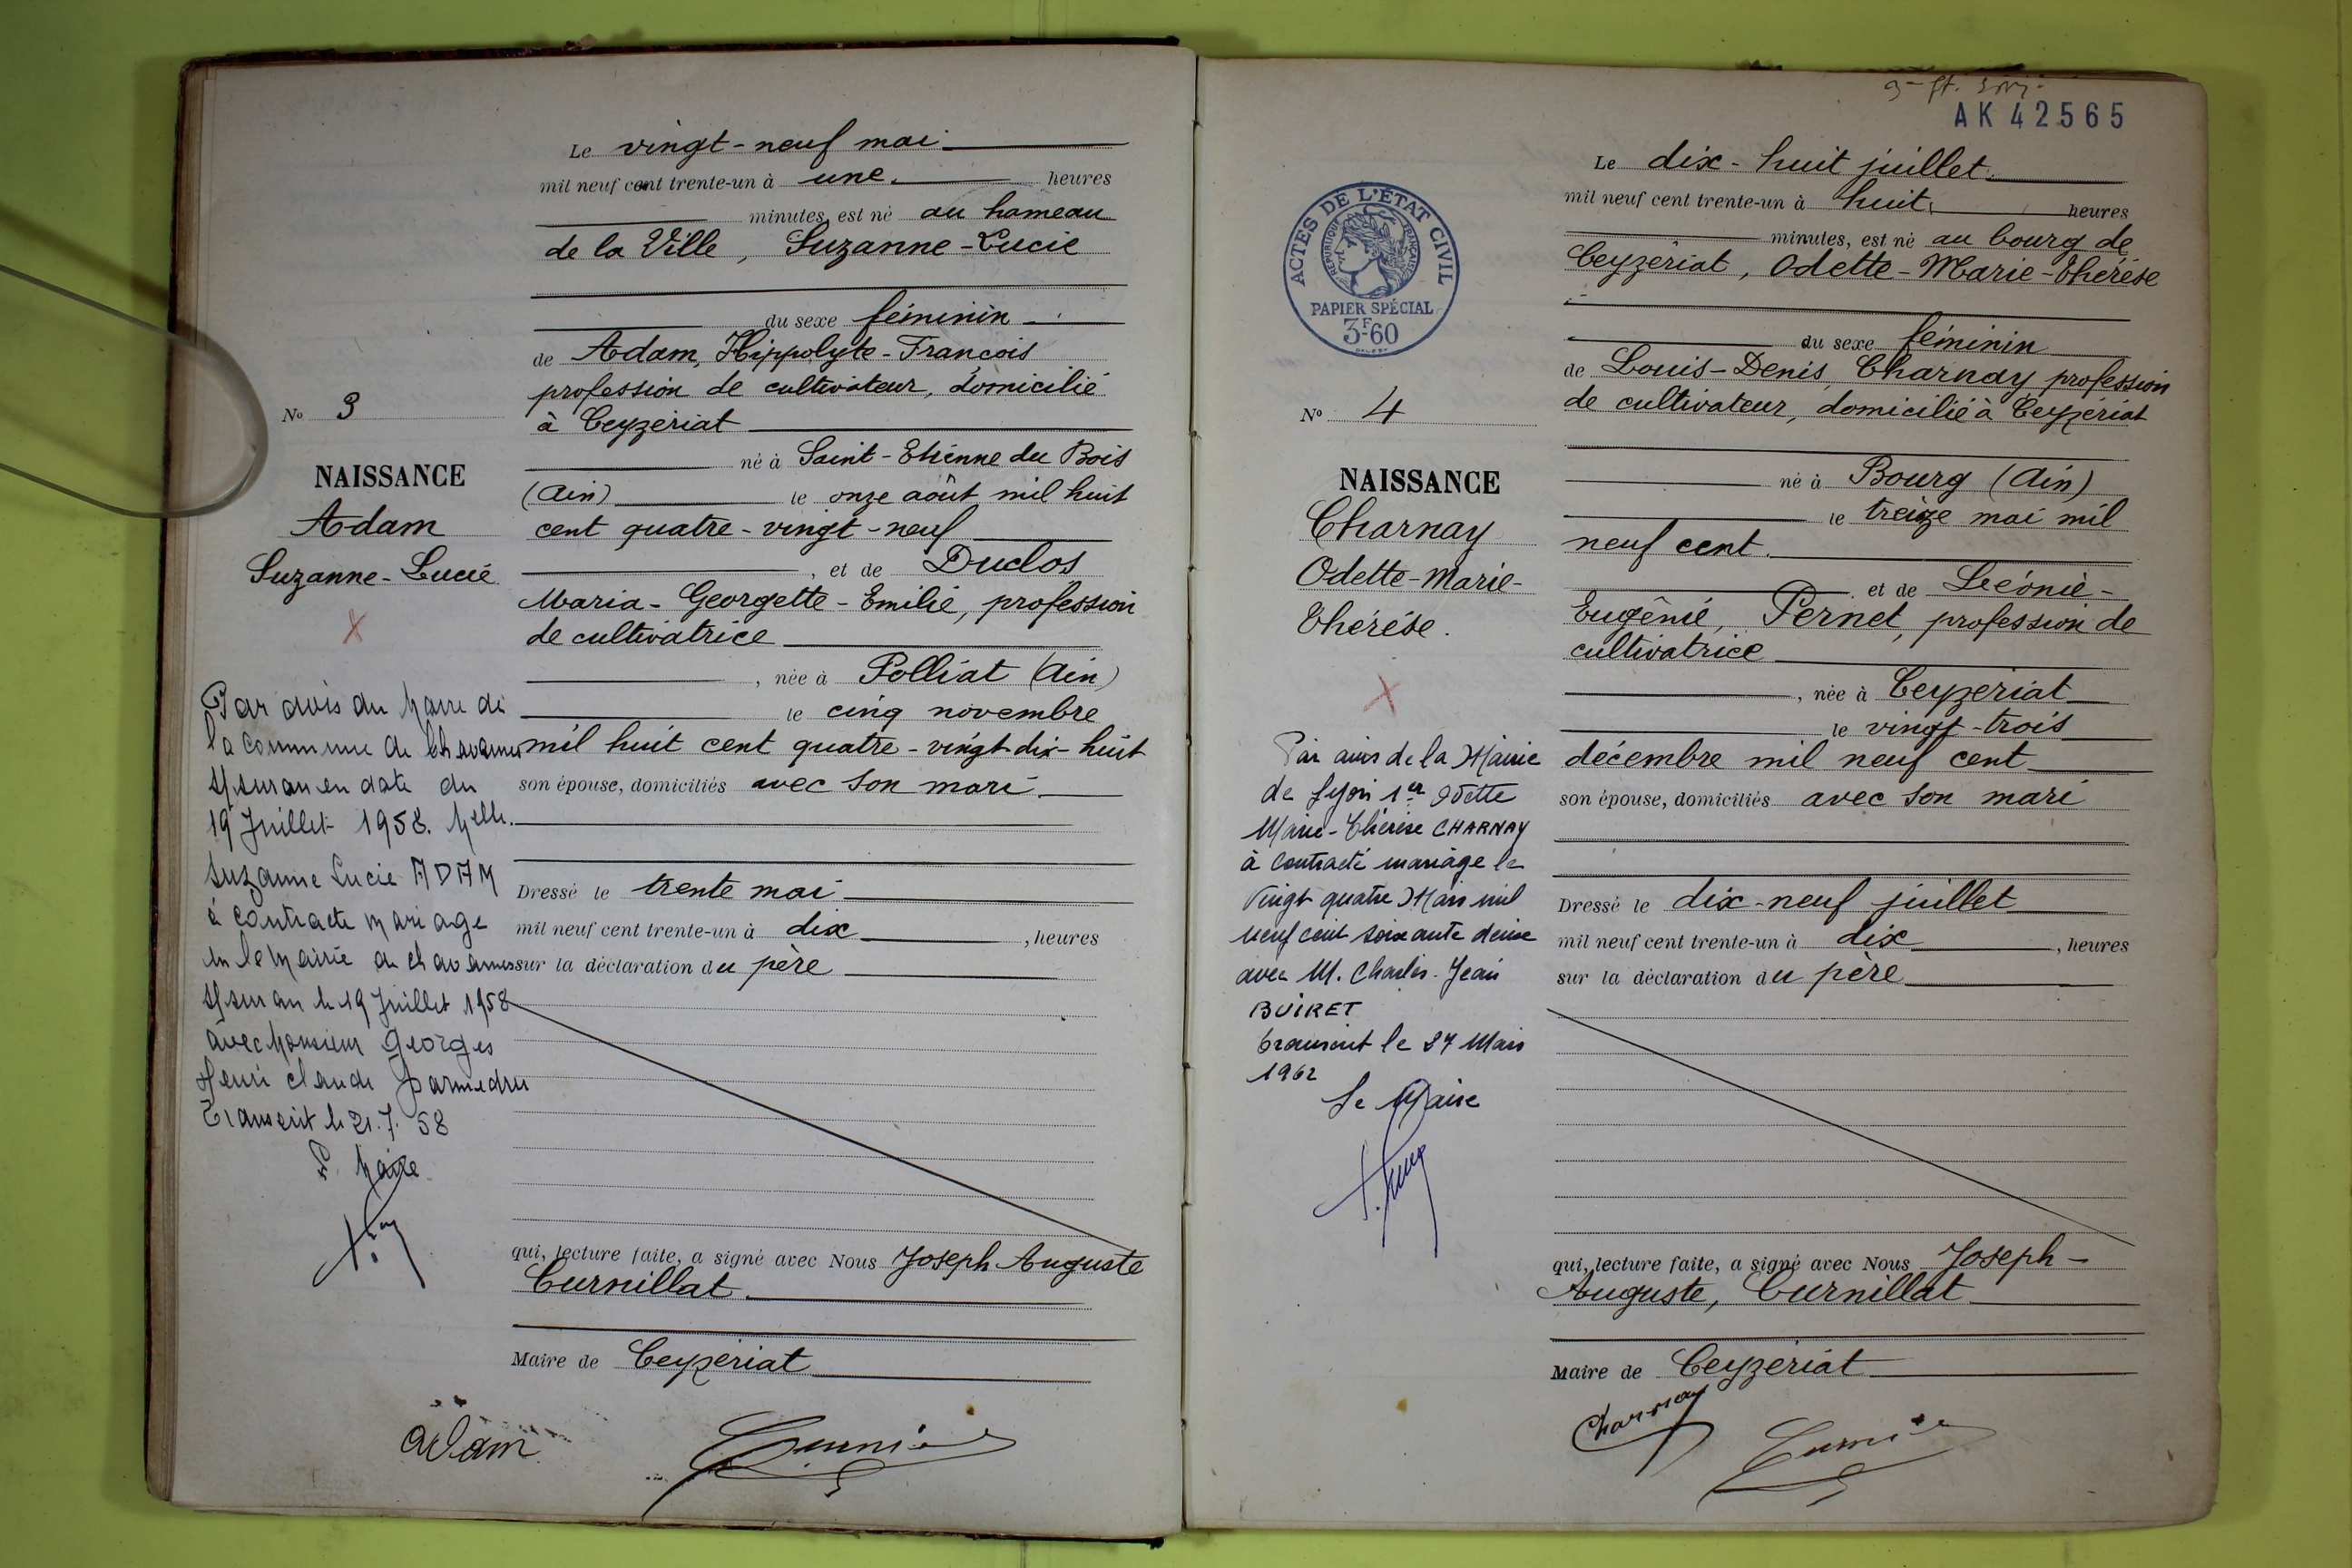 Le vingt-neuf mai
mil neuf cent trente-un à une heures
minutes, est né au hameau
de la Ville, Suzanne-Lucie
du sexe féminin
de Adam, Hippolyte-François
profession de cultivateur, domicilié
à Ceyzériat
né à Saint-Etienne du Bois
(Ain) le onze août mil huit
cent quatre-vingt-neuf
, et de Duclos
Maria-Georgette-Emilie, profession
de cultivatrice
, née à Polliat (Ain)
le cinq novembre
mil huit cent quatre-vingt dix-huit
son épouse, domiciliés avec son mari
Dressé le trente mai
mil neuf cent trente-un à dix , heures
sur la déclaration du père
qui, lecture faite, a signé avec Nous Joseph Auguste
Curnillat
Maire de Ceyzériat
Adam
No 3
NAISSANCE
Adam
Suzanne-Lucie
Par avis du Maire de
la Commune de Chavannes
s/ suran en date du
19 Juillet 1958. Melle.
Suzanne Lucie ADAM
à contracté mariage
en la Mairie de Chavannes
s/ suran le 19 Juillet 1958
avec Monsieur Georges
Henri Claude
Transcrit le 21.7.58
Maire
AK 42565
Le dix-huit juillet
mil neuf cent trente-un à huit heures
minutes, est né au bourg de
Ceyzériat, Odette-Marie-Thérése
du sexe féminin
de Louis-Denis, Charnay profession
de cultivateur, domicilié à Ceyzériat
né à Bourg (Ain)
le treize mai mil
neuf cent
et de Léonie-
Eugénie, Pernet, profession de
cultivatrice
, née à Ceyzeriat
le vingt-trois
décembre mil neuf cent
son épouse, domiciliés avec son mari
Dressé le dix-neuf juillet
mil neuf cent trente-un à dix , heures
sur la déclaration du père
qui, lecture faite, a signé avec Nous Joseph-
Auguste, Curnillat
Maire de Ceyzériat
Charnay
ACTES DE L'ÉTAT CIVIL
RÉPUBLIQUE FRANÇAISE
PAPIER SPÉCIAL
3F60
No 4
NAISSANCE
Charnay
Odette-Marie-
Thérése.
Par avis de la Mairie
de Lyon 1er Odette
Marie-Thérèse CHARNAY
à contracté mariage le
vingt quatre Mars mil
neuf cent soixante deux
avec M. Charles-Jean
BUIRET
transcrit le 27 Mars
1962
Le Maire